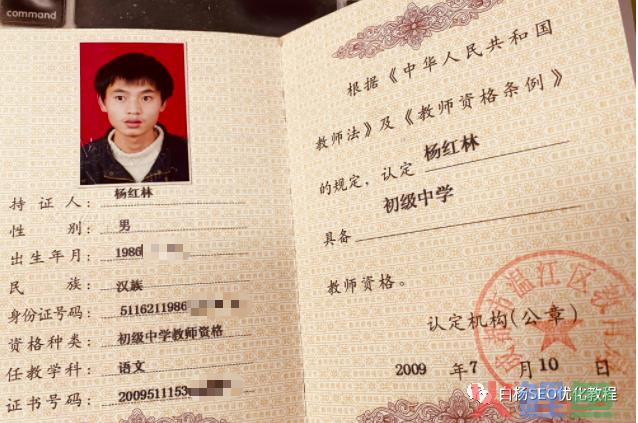 command
持证人：杨红林
性别：男
出生年月：1986
民族：汉族
身份证号码：5116211986
资格种类：初级中学教师资格
任教学科：语文
证书号码：2009511153
根据《中华人民共和国
教师法》及《教师资格条例》
的规定，认定 杨红林
具备 初级中学
教师资格。
认定机构(公章)
2009 年 7 月 10 日
白杨SEO优化教程